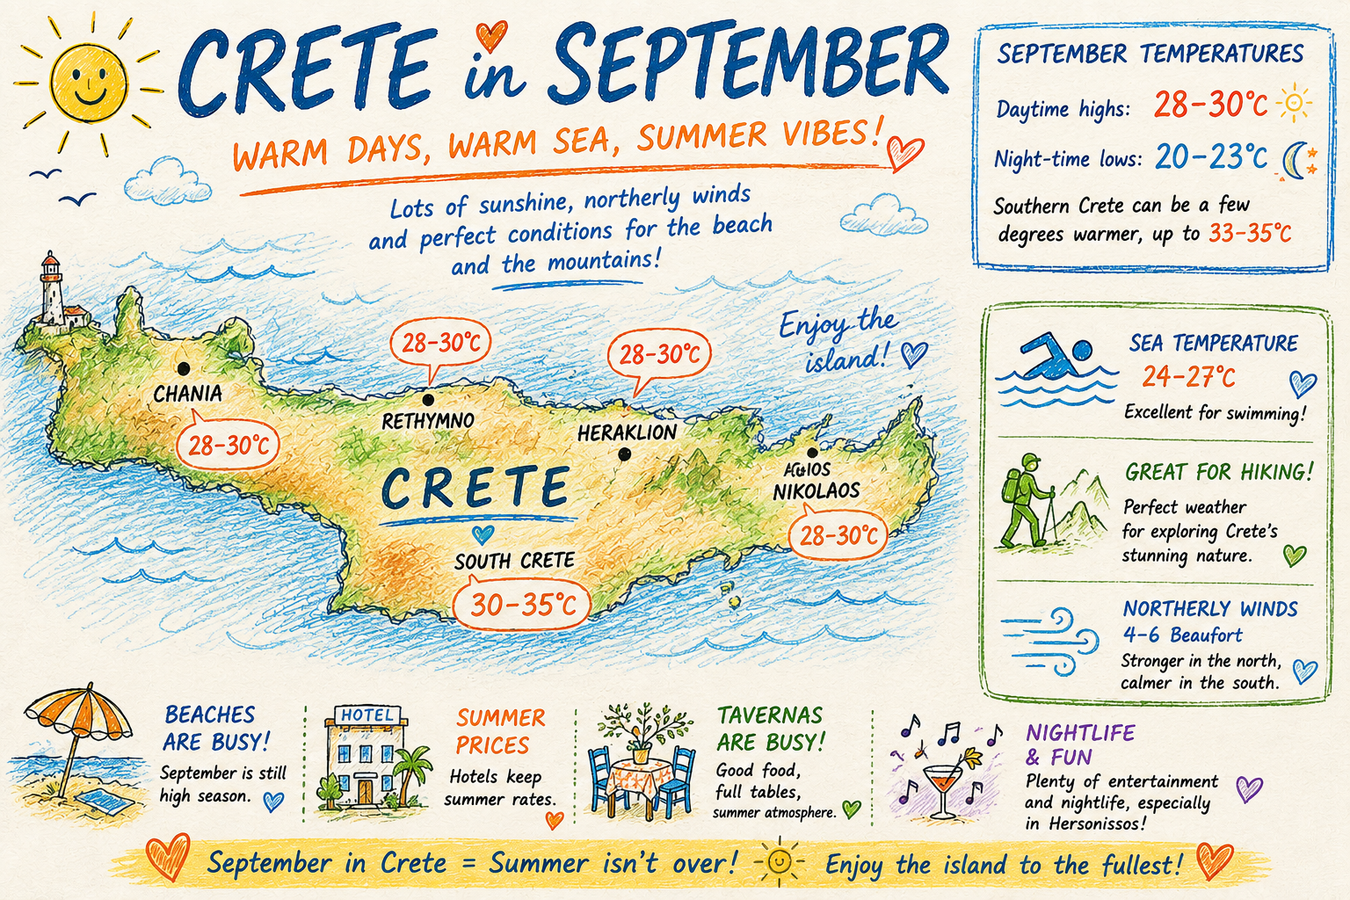 CRETE in SEPTEMBER
WARM DAYS, WARM SEA, SUMMER VIBES!
Lots of sunshine, northerly winds
and perfect conditions for the beach
and the mountains!
SEPTEMBER TEMPERATURES
Daytime highs: 28-30°C
Night-time lows: 20-23°C
Southern Crete can be a few
degrees warmer, up to 33-35°C
Enjoy the
island!
28-30°C
28-30°C
CHANIA
28-30°C
RETHYMNO
HERAKLION
CRETE
NIKOLAOS
28-30°C
SOUTH CRETE
30-35°C
SEA TEMPERATURE
24-27°C
Excellent for swimming!
GREAT FOR HIKING!
Perfect weather
for exploring Crete's
stunning nature.
NORTHERLY WINDS
4-6 Beaufort
Stronger in the north,
calmer in the south.
BEACHES
ARE BUSY!
September is still
high season.
HOTEL
SUMMER
PRICES
Hotels keep
summer rates.
TAVERNAS
ARE BUSY!
Good food,
full tables,
summer atmosphere.
NIGHTLIFE
& FUN
Plenty of entertainment
and nightlife, especially
in Hersonissos!
September in Crete = Summer isn't over!
Enjoy the island to the fullest!